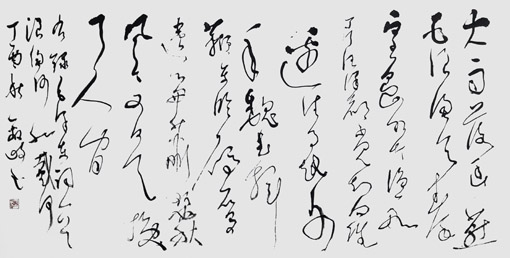 大雨落幽燕
白浪滔天秦
皇岛外打渔船
一片汪洋都不见知向谁
边往事越千
年魏武挥
鞭东临碣石有
遗篇萧瑟秋
风今又是换
了人间
右录毛泽东词一首
浪淘沙北戴河
丁酉秋书